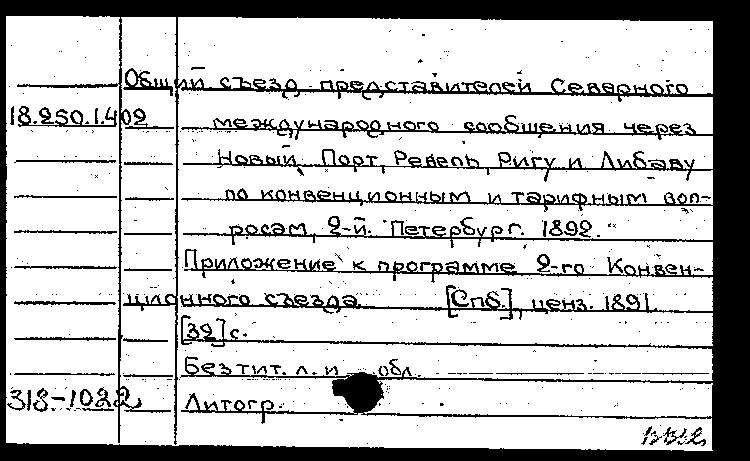 Общий съезд представителей Северного
18.250.1.402 международного сообщения через
Новый Порт, Ревель, Ригу и Либаву
по конвенционным и тарифным воп-
росам, 2-й. Петербург. 1892.
Приложение к программе 2-го Конвен-
ционного съезда [Спб.], ценз. 1891.
[32] с.
Без тит. л. и обл.
318-1022 Литогр.